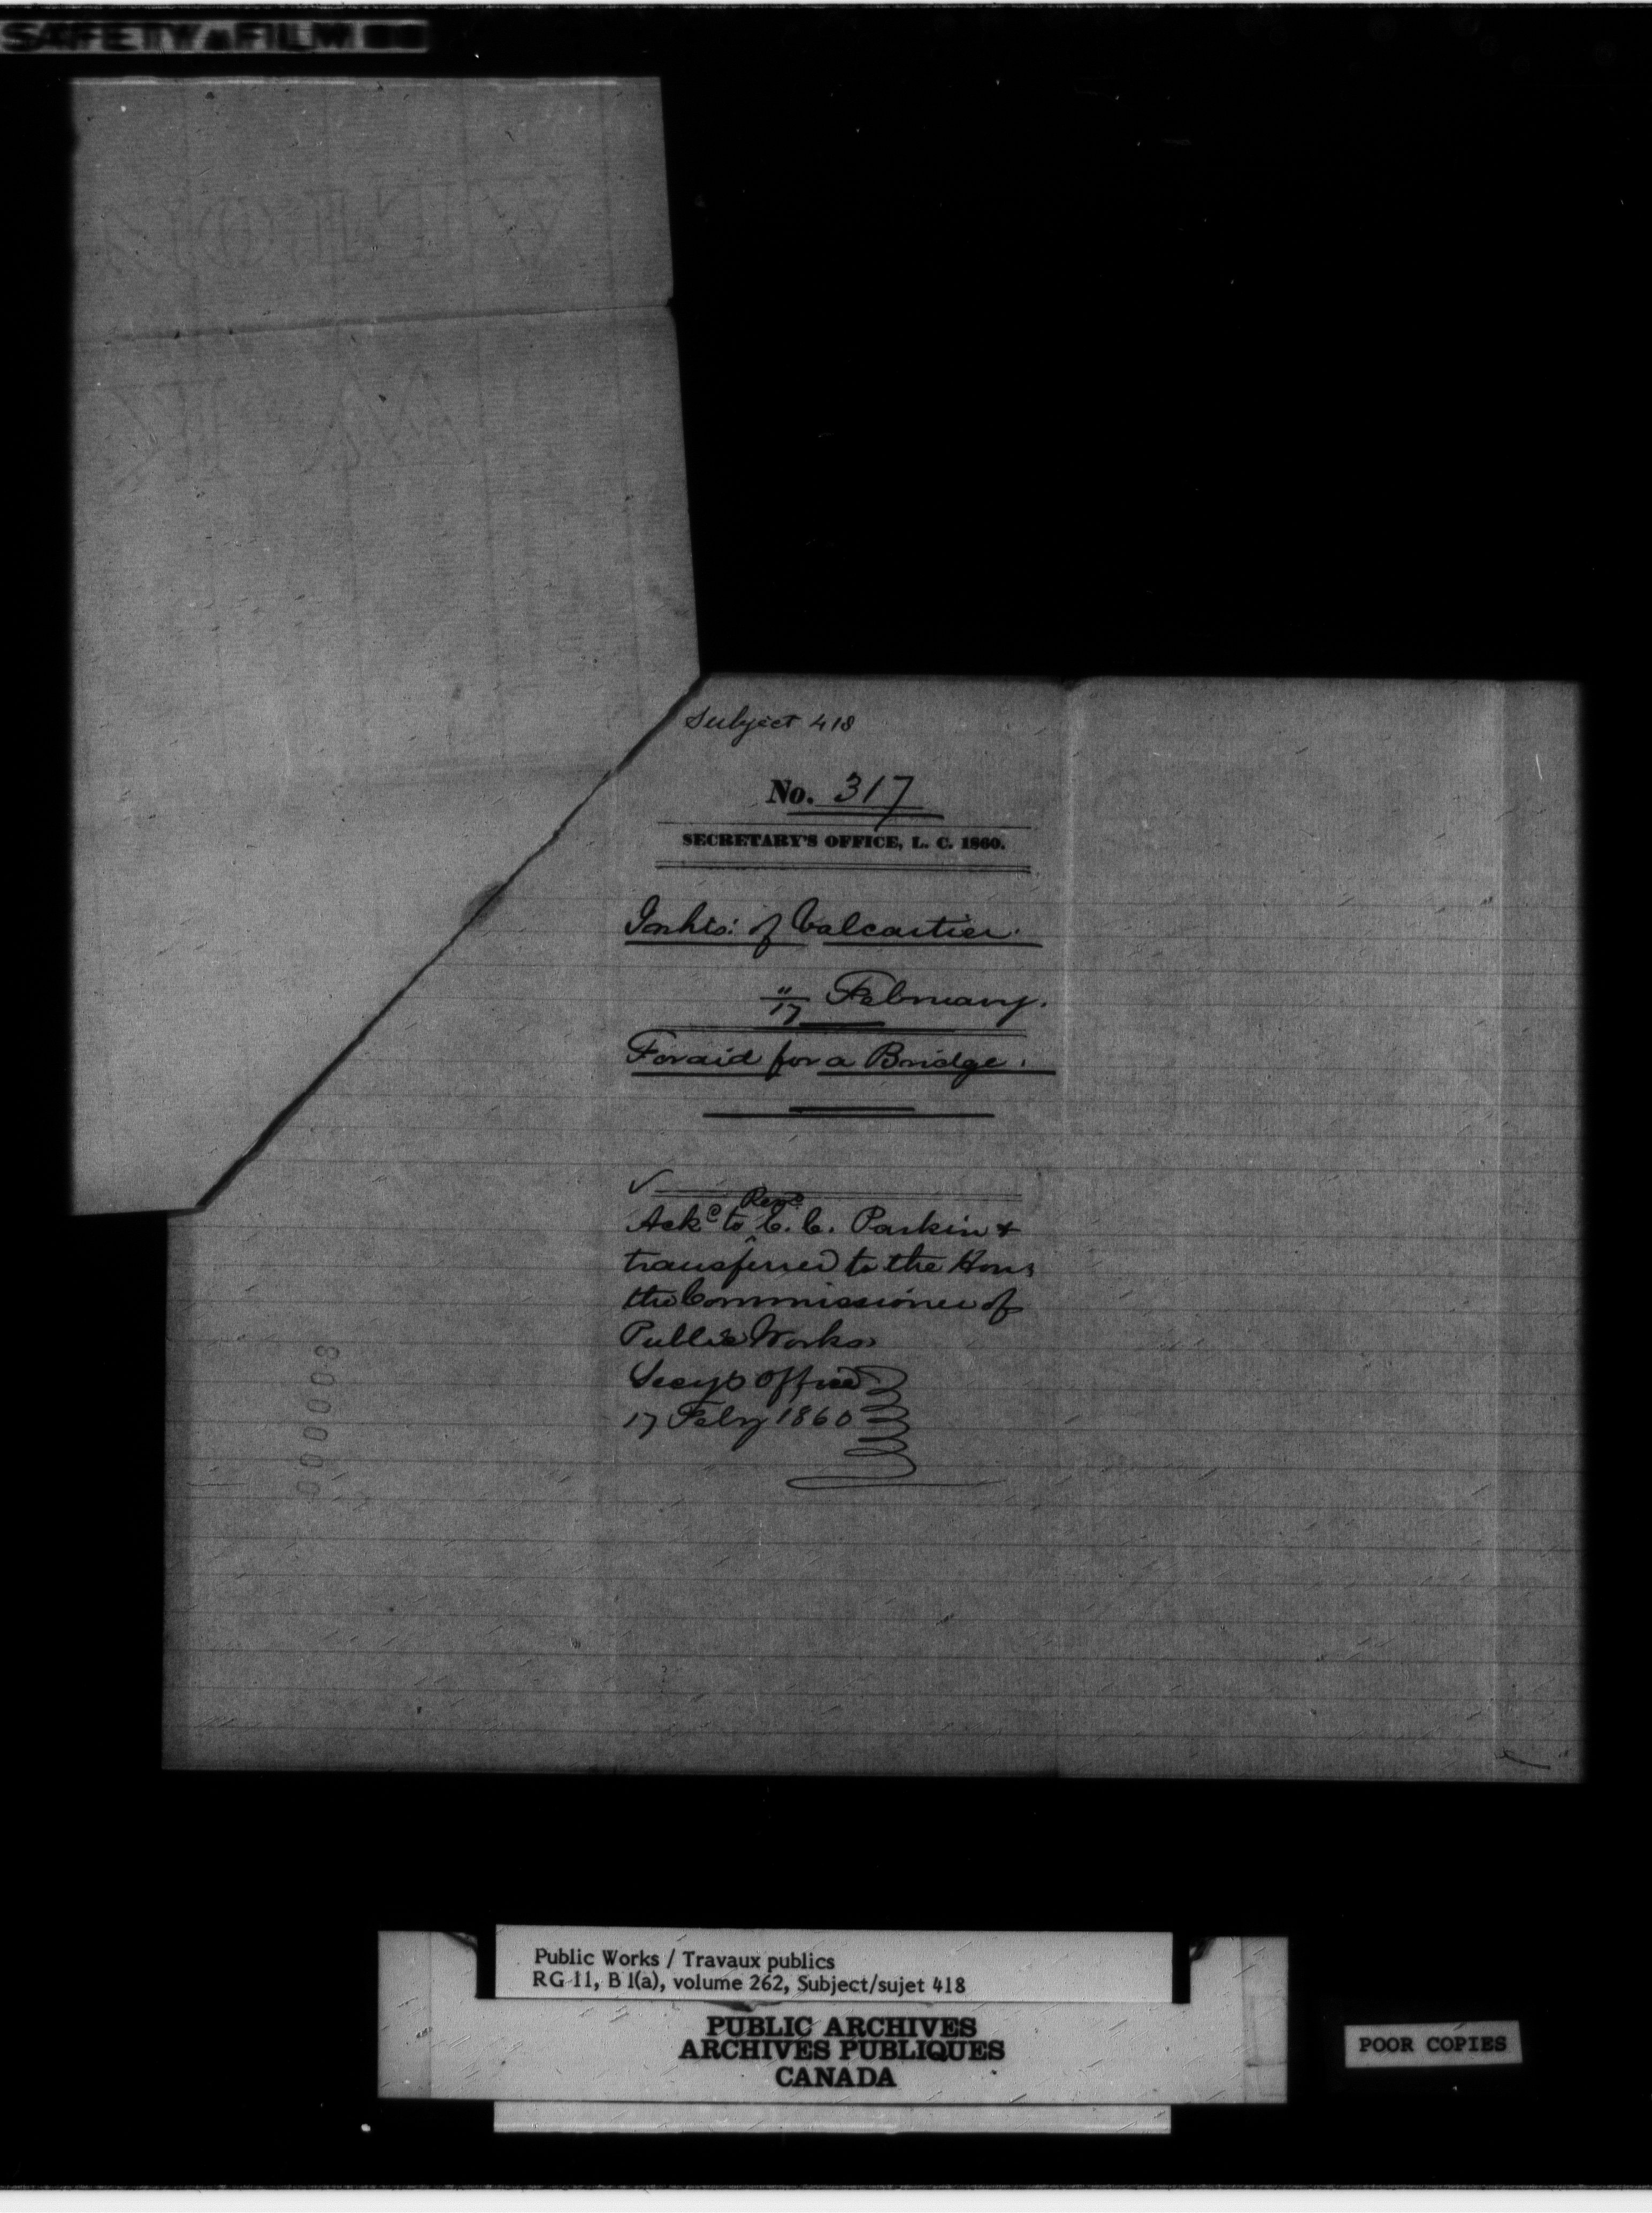 SAFETY FILM
Subject 418
No. 317
SECRETARY'S OFFICE, L. C. 1860.
Inhts: of Valcartier.
"/17 February.
For aid for a Bridge.
Revd
Ackd to E. C. Parkin &
transferred to the Hon:
the Commissioner of
Public Works
Secy's Office
17 Feby 1860
000008
Public Works / Travaux publics
RG 11, B 1(a), volume 262, Subject/sujet 418
PUBLIC ARCHIVES
ARCHIVES PUBLIQUES
CANADA
POOR COPIES